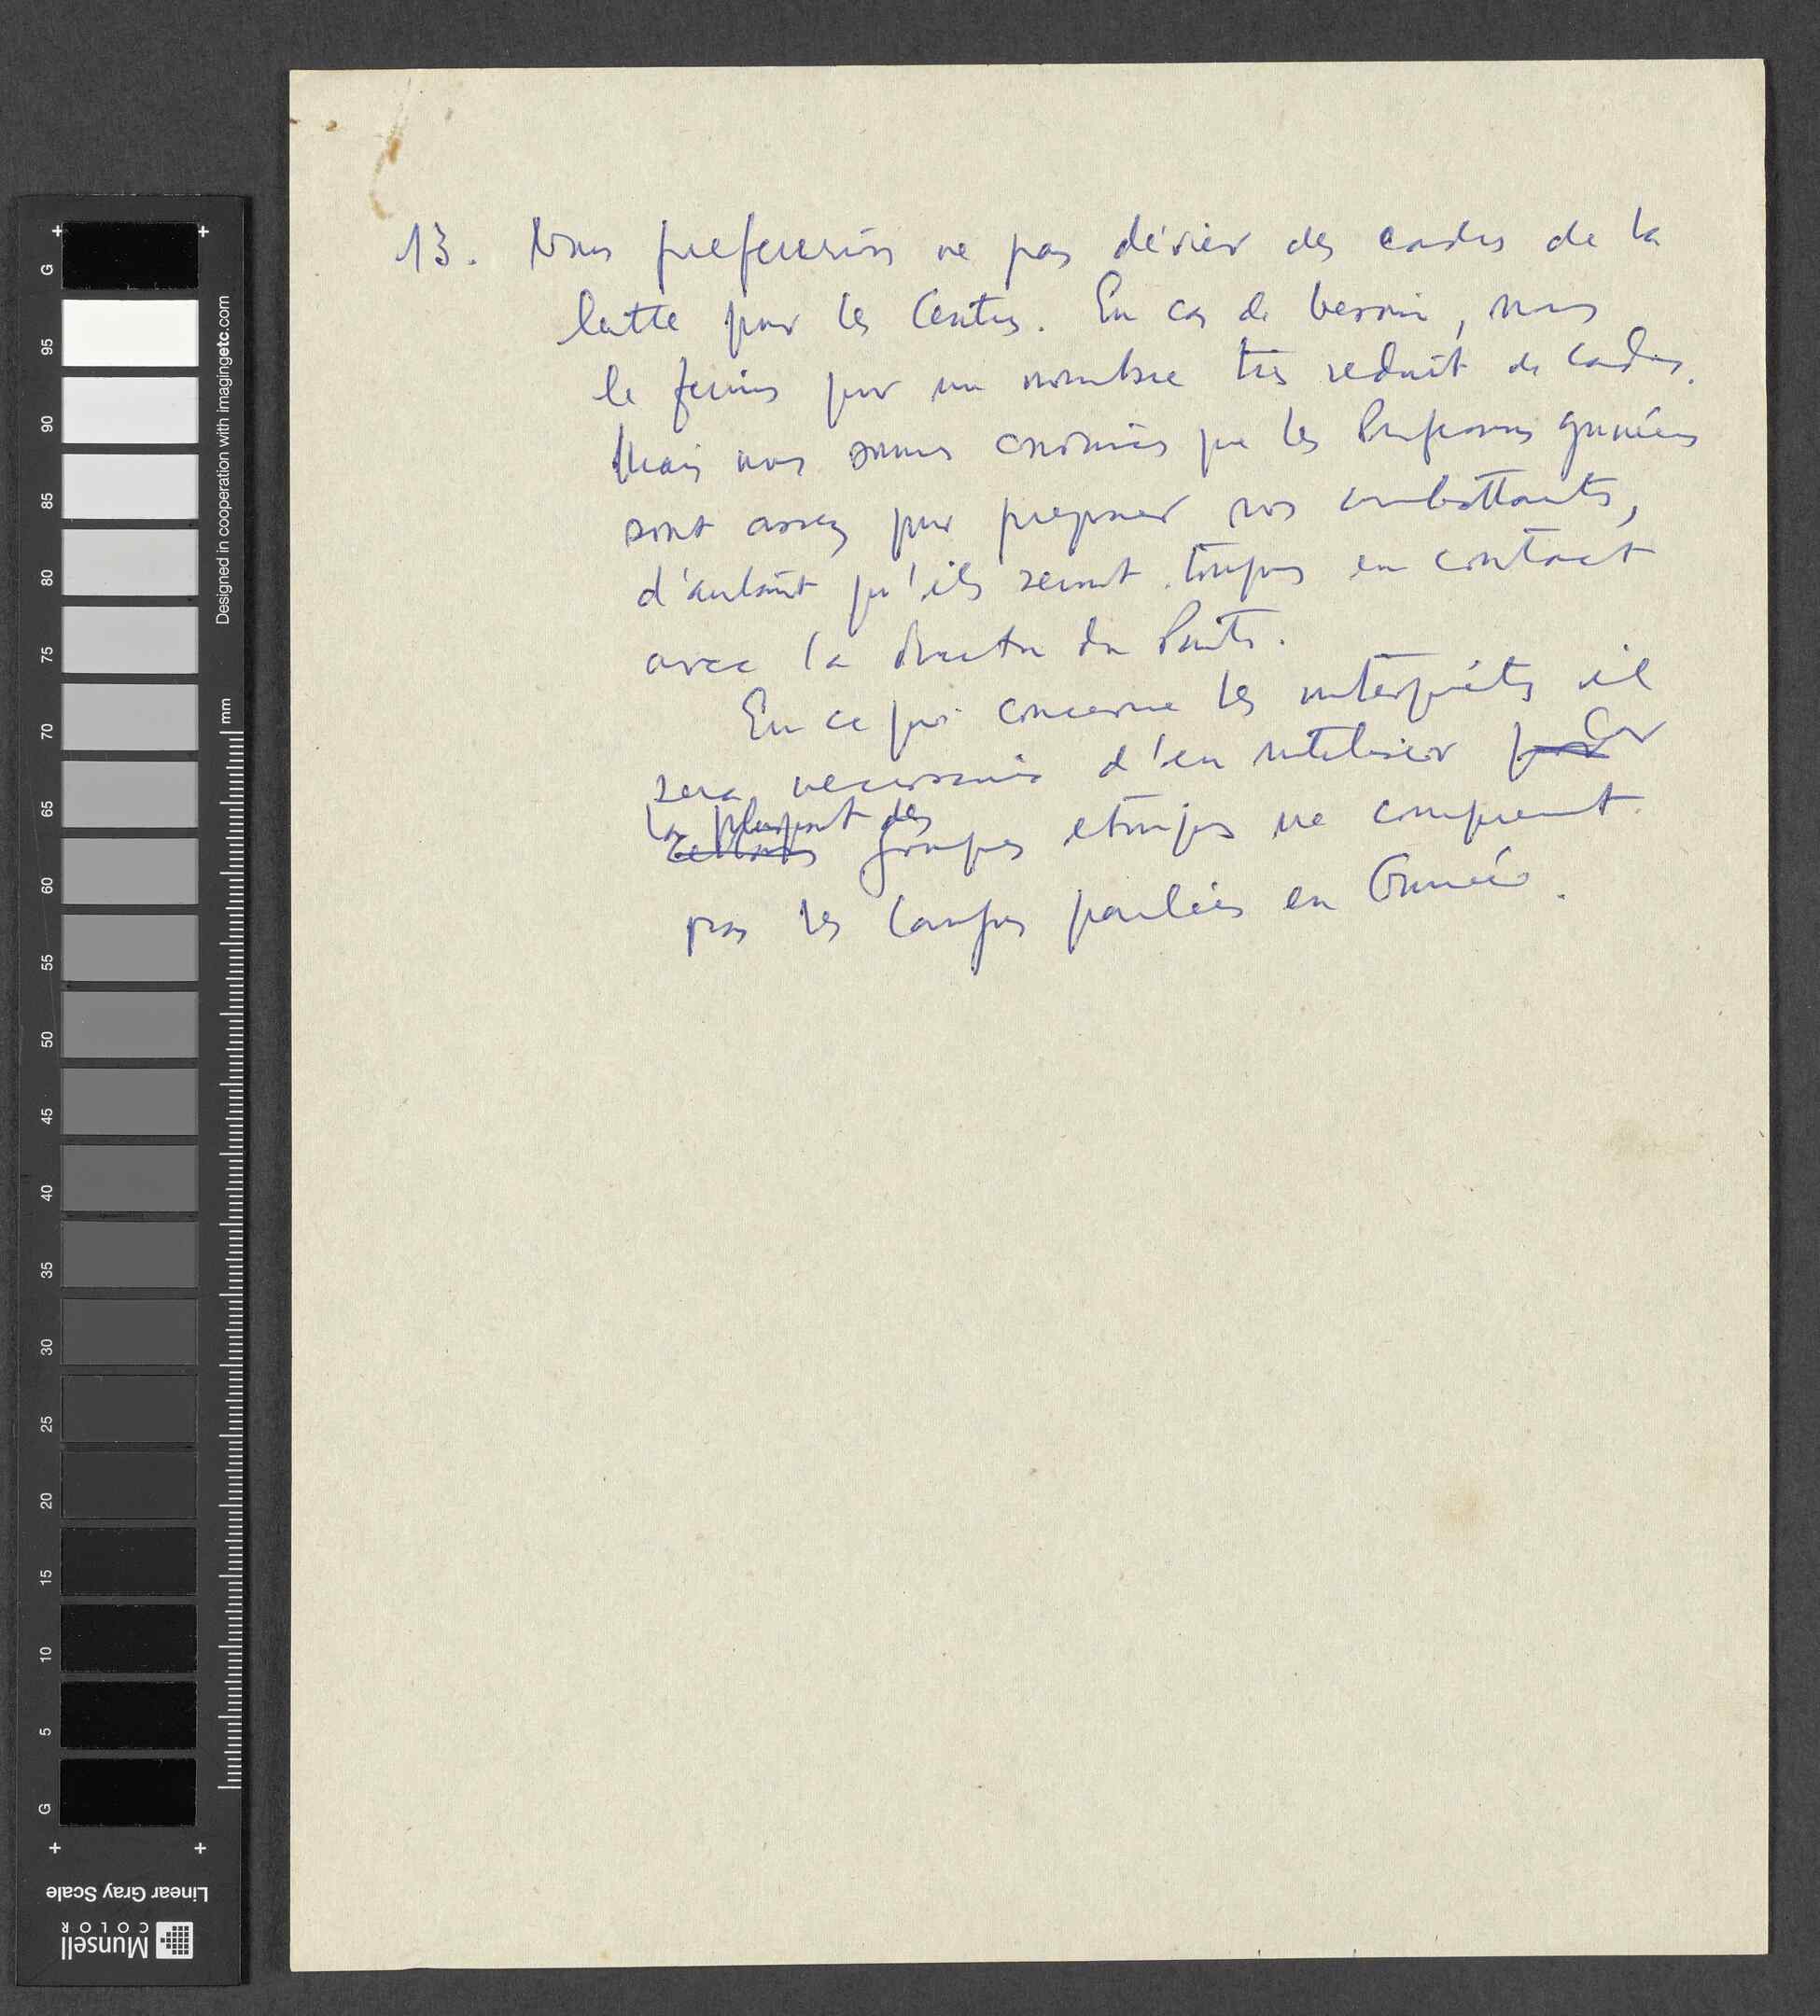 13. Nous preferons ne pas dévier des cadres de la
lutte pour les Centres. En cas de besoin, nous
le ferions pour un nombre très reduit de cadres.
Mais nous sommes convaincus que les Professeurs guinéens
sont assez pour preparer nos combattants,
d'autant qu'ils seront toujours en contact
avec la direction du Parti.
En ce qui concerne les interprètes il
sera necessaire d'en utiliser pour Car
la plupart des
certains groupes etniques ne comprennent
pas les langues parlées en Guinée.
G 95 90 85 80 75 70 65 60 55 50 45 40 35 30 25 20 15 10 5 G
Designed in cooperation with imagingetc.com
mm
Linear Gray Scale
Munsell
COLOR